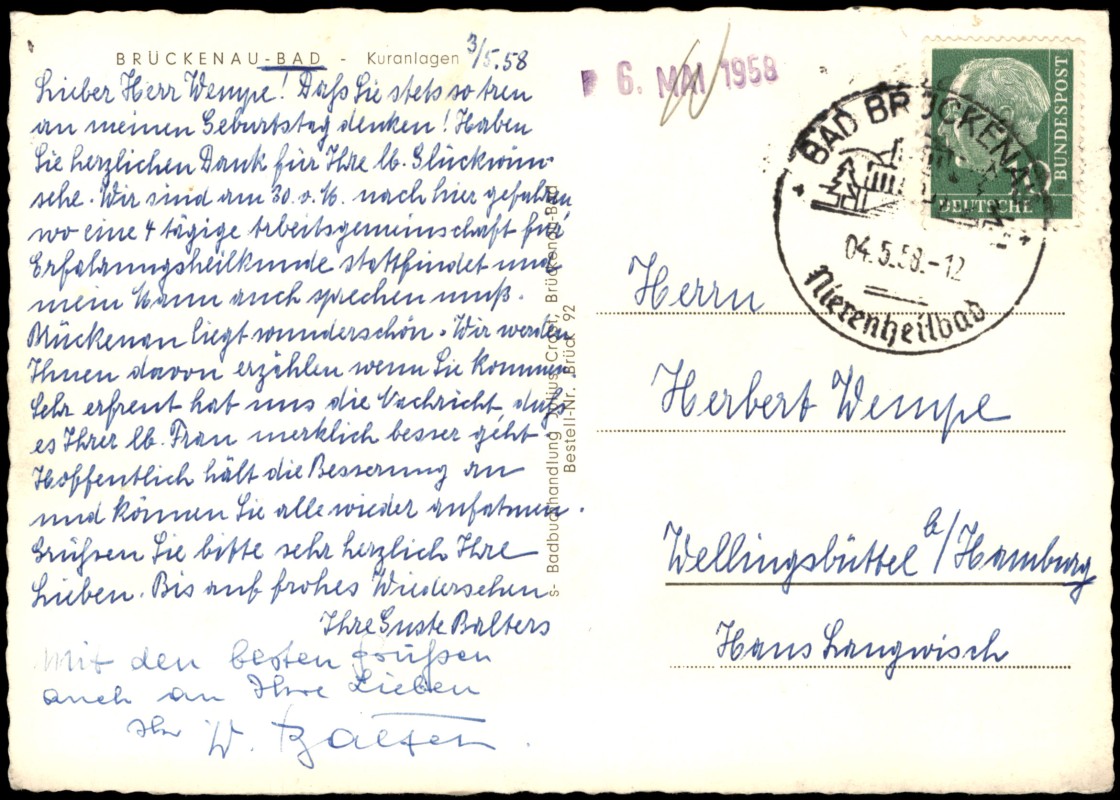 BRÜCKENAU-BAD - Kuranlagen 3/5.58
Lieber Herr Wempe! Daß Sie stets so treu
an meinen Geburtstag denken! Haben
Sie herzlichen Dank für Ihre lb. Glückwün-
sche. Wir sind am 30. v. M. nach hier gefahren
wo eine 4 tägige Arbeitsgemeinschaft für
Erfahrungsheilkunde stattfindet und
mein Mann auch sprechen muß.
Brückenau liegt wunderschön. Wir werden
Ihnen davon erzählen wenn Sie kommen
Sehr erfreut hat uns die Nachricht, daß
es Ihrer lb. Frau merklich besser geht.
Hoffentlich hält die Besserung an
und können Sie alle wieder aufatmen.
Grüßen Sie bitte sehr herzlich Ihre
Lieben. Bis auf frohes Wiedersehen
Ihre Guste Balters
Mit den besten Grüßen
auch an Ihre Lieben
Ihr W. Balters.
s- Badbuchhandlung Julius Crott, Brückenau-Bad
Bestell-Nr. Brück 92
6. MAI 1958
BAD BRÜCKENAU
04.5.58.-12
Nierenheilbad
DEUTSCHE
BUNDESPOST
Herrn
Herbert Wempe
Wellingsbüttel b/Hamburg
Hans Langwisch